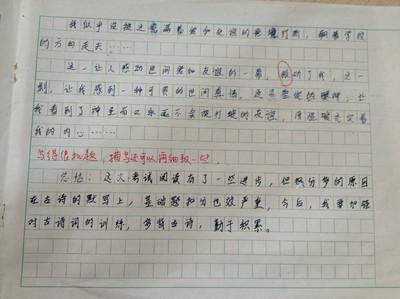 我似乎没被这意蕴着爱和友谊的打断，朝着学校
的方向走去……
这一让人感动世间爱和友谊的一幕，感动了我，这一
刻，让我感到一种可贵的世间真情，还是坚定的眼神，让
我看到了神圣而又永远不会被打破的友谊，
我的内心……
写得很扣题，描写还可以再细致一些。
总结：这次考试阅读有了一些进步，但扣分多的原因
在古诗的默写上，基础题扣分也较严重。今后，我要加强
对古诗词的训练，多背古诗，勤于积累。